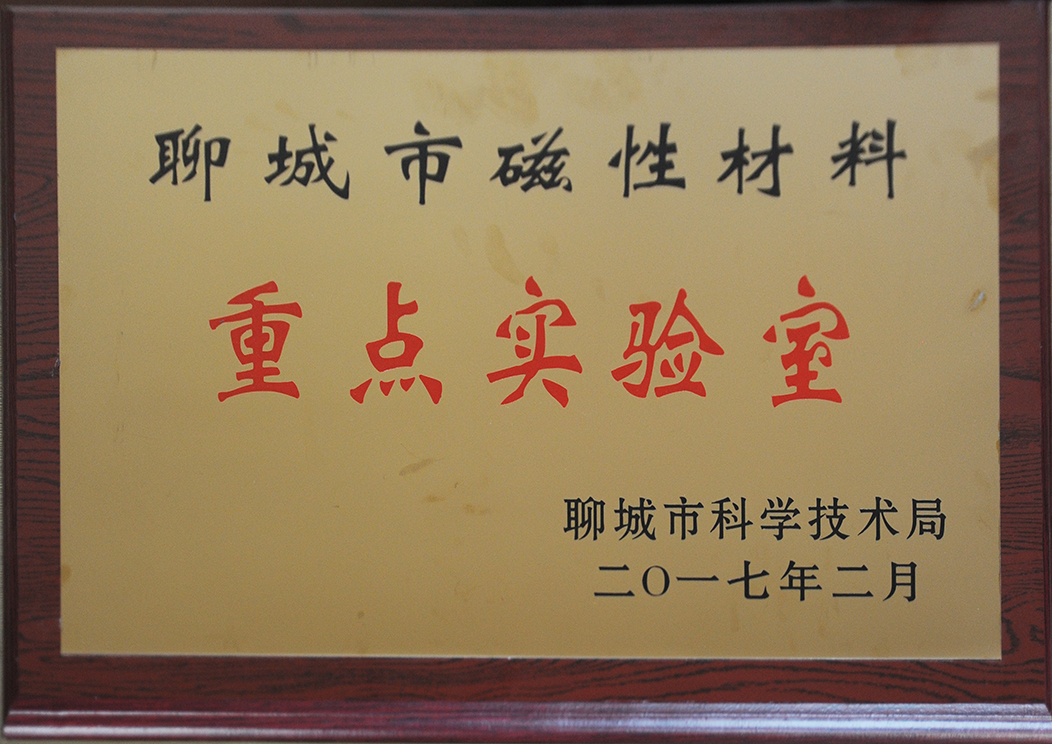 聊城市磁性材料
重点实验室
聊城市科学技术局
二〇一七年二月